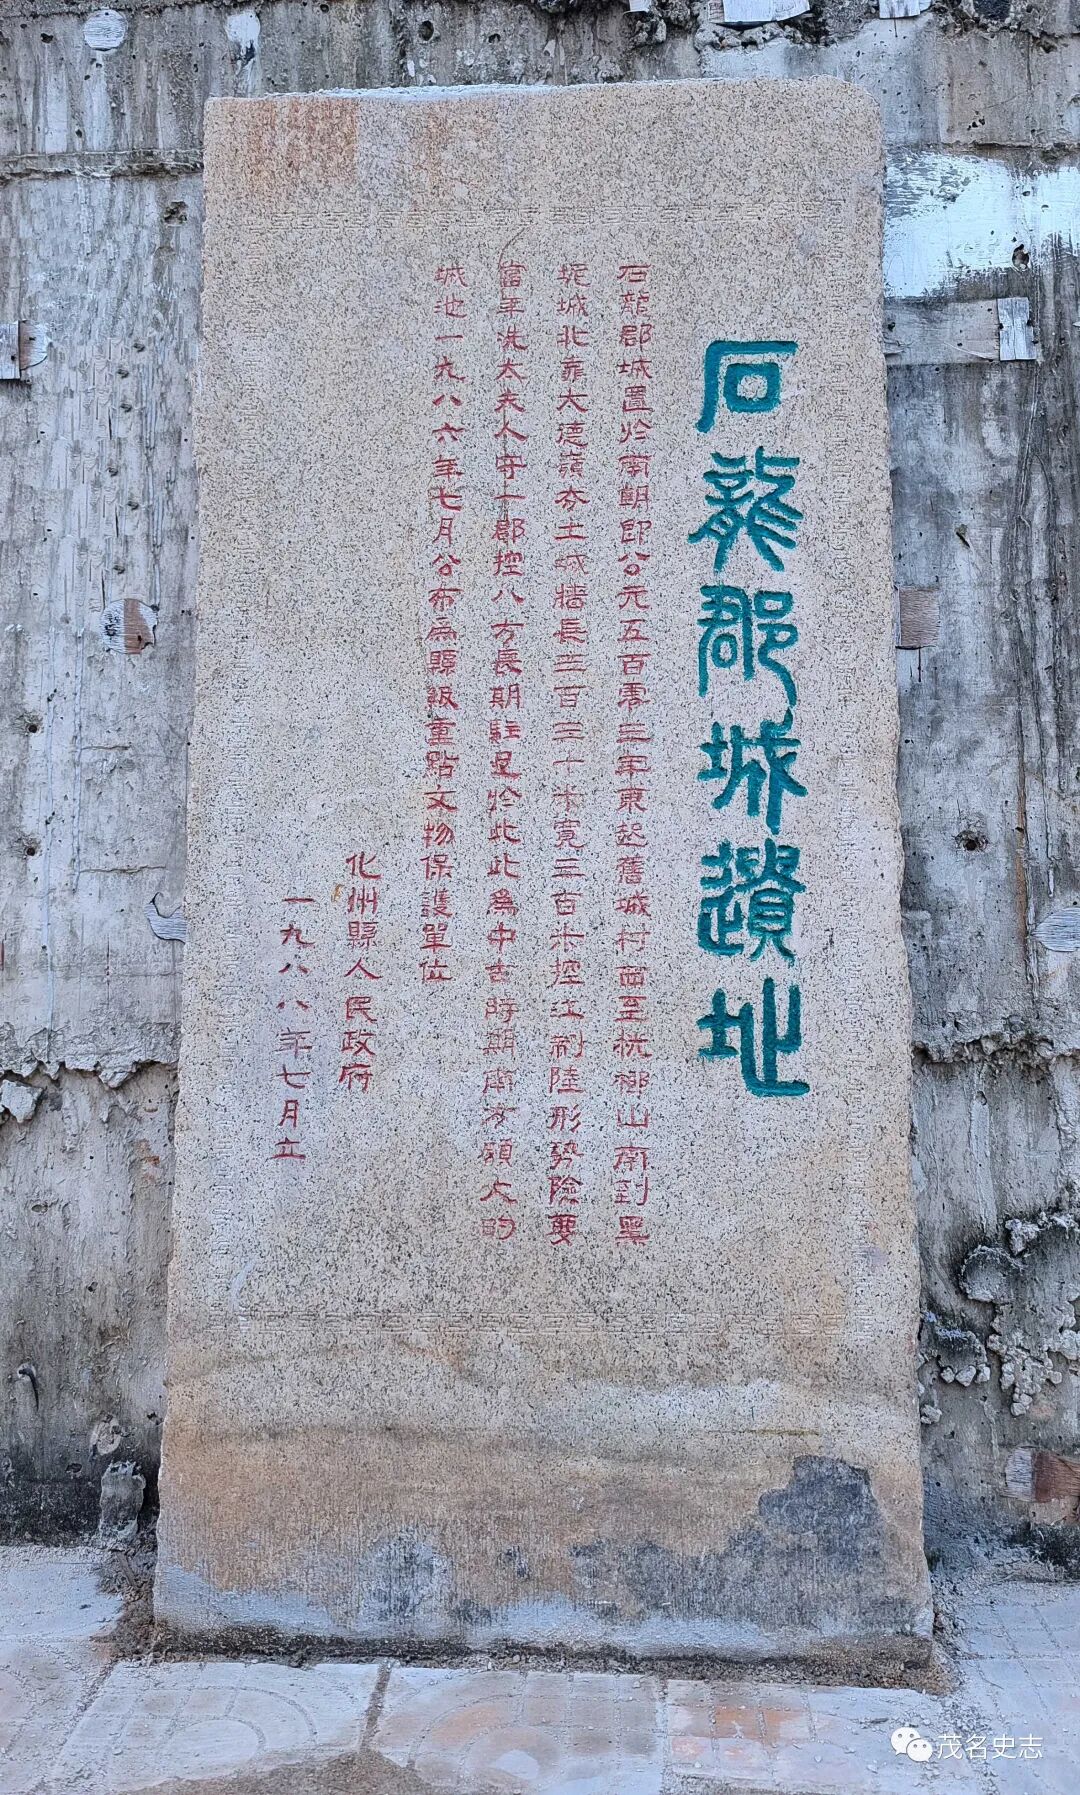 石龍郡城遺址
石龍郡城置於南朝即公元五百零三年東起舊城村西至桄榔山南到黑
坭城北靠大德嶺夯土城牆長三百三十米寬三百米控江制陸形勢險要
當年洗太夫人守一郡控八方長期駐足於此此為中古時期南方頗大的
城池一九八六年七月公布為縣級重點文物保護單位
化州縣人民政府
一九八八年七月立
茂名史志